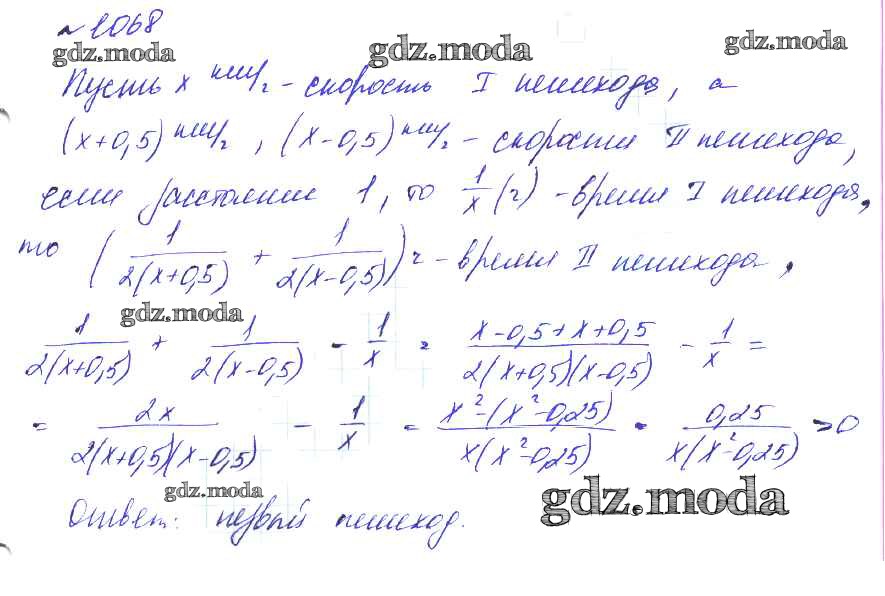 № 1068
gdz.moda gdz.moda gdz.moda
Пусть x км/ч - скорость I пешехода, а
(x+0,5) км/ч, (x-0,5) км/ч - скорости II пешехода,
если расстояние 1, то 1/x (ч) - время I пешехода,
то (1/(2(x+0,5)) + 1/(2(x-0,5))) ч - время II пешехода,
gdz.moda
1/(2(x+0,5)) + 1/(2(x-0,5)) - 1/x = (x-0,5+x+0,5)/(2(x+0,5)(x-0,5)) - 1/x =
= 2x/(2(x+0,5)(x-0,5)) - 1/x = (x²-(x²-0,25))/(x(x²-0,25)) = 0,25/(x(x²-0,25)) > 0
gdz.moda gdz.moda
Ответ: первый пешеход.